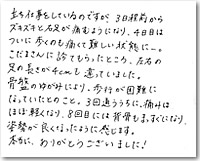 立ち仕事をしているのですが、3日程前から
ズキズキと右足が痛むようになり、4日目は
ついに歩くのも痛くて難しい状態に…。
こだまさんに診てもらったところ、左右の
足の長さが4cmも違っていました。
骨盤のゆがみにより、歩行が困難に
なっていたとのこと。3回通ううちに、痛みは
ほぼ軽くなり、8回目には背骨もまっすぐになり、
姿勢が良くなったように感じます。
本当に、ありがとうございました!